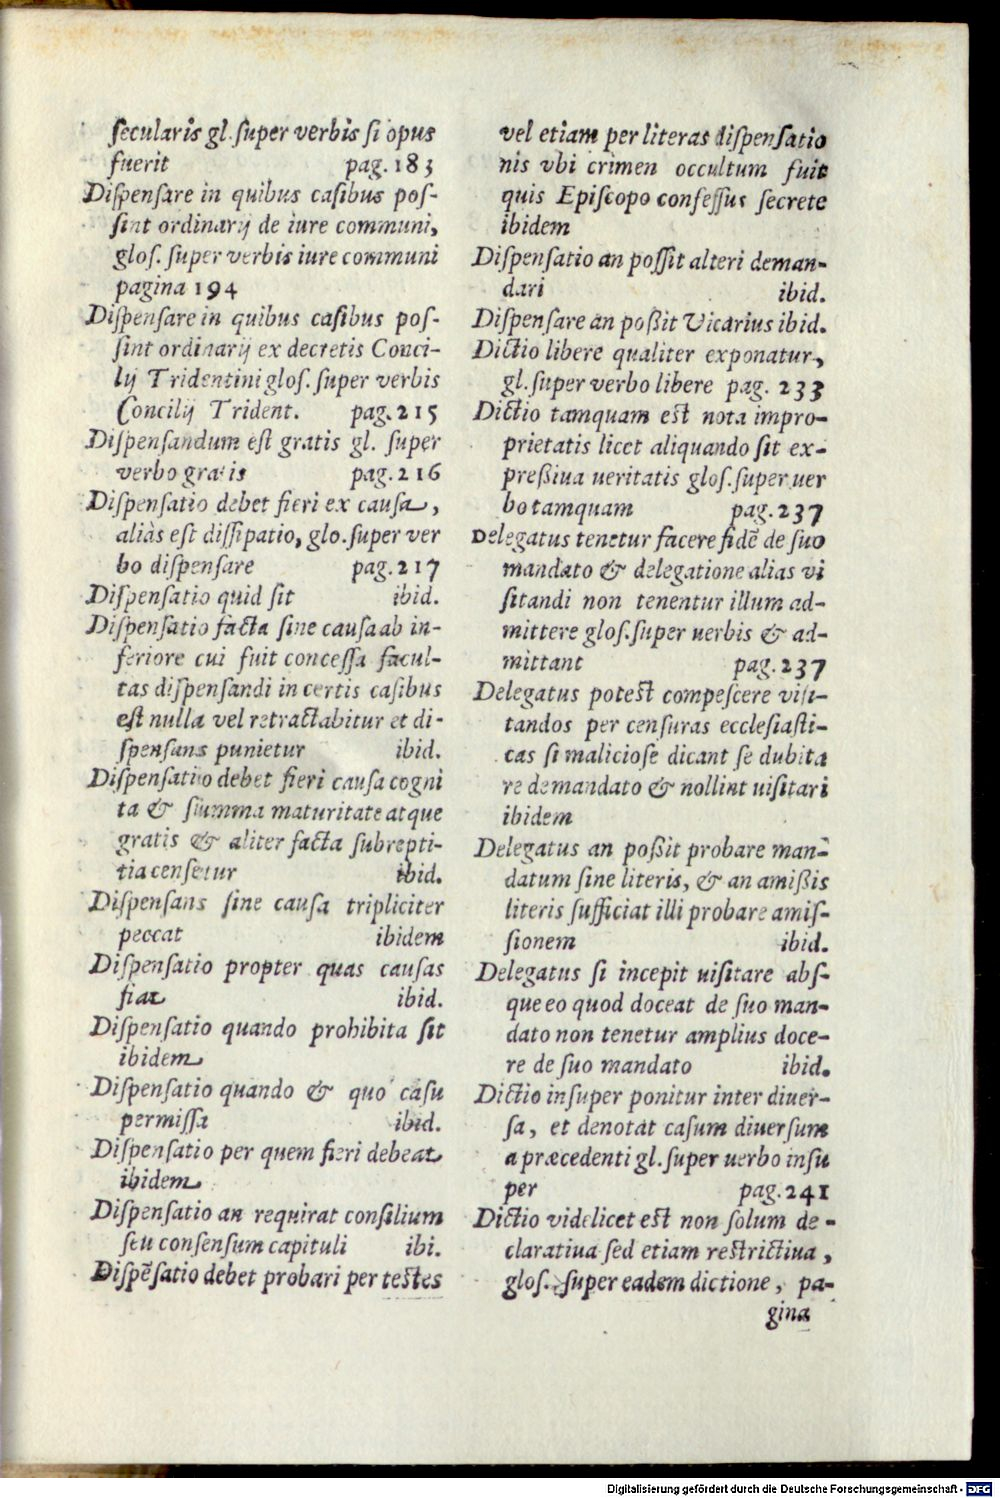 secularis gl. super verbis si opus
fuerit pag. 183
Dispensare in quibus casibus pos-
sint ordinarij de iure communi,
glos. super verbis iure communi
pagina 194
Dispensare in quibus casibus pos-
sint ordinarij ex decretis Conci-
lij Tridentini glos. super verbis
Concilij Trident. pag. 215
Dispensandum est gratis gl. super
verbo gratis pag. 216
Dispensatio debet fieri ex causa,
aliàs est dissipatio, glo. super ver
bo dispensare pag. 217
Dispensatio quid sit ibid.
Dispensatio facta sine causa ab in-
feriore cui fuit concessa facul-
tas dispensandi in certis casibus
est nulla vel retractabitur et di-
spensans punietur ibid.
Dispensatio debet fieri causa cogni
ta & summa maturitate atque
gratis & aliter facta subrepti-
tia censetur ibid.
Dispensans sine causa tripliciter
peccat ibidem
Dispensatio propter quas causas
fiat ibid.
Dispensatio quando prohibita sit
ibidem
Dispensatio quando & quo casu
permissa ibid.
Dispensatio per quem fieri debeat
ibidem
Dispensatio an requirat consilium
seu consensum capituli ibi.
Dispẽsatio debet probari per testes
vel etiam per literas dispensatio
nis vbi crimen occultum fuit
quis Episcopo confessus secrete
ibidem
Dispensatio an possit alteri deman-
dari ibid.
Dispensare an poßit Vicarius ibid.
Dictio libere qualiter exponatur,
gl. super verbo libere pag. 233
Dictio tamquam est nota impro-
prietatis licet aliquando sit ex-
preßiua veritatis glos. super uer
bo tamquam pag. 237
Delegatus tenetur facere fidẽ de suo
mandato & delegatione alias vi
sitandi non tenentur illum ad-
mittere glos. super uerbis & ad-
mittant pag. 237
Delegatus potest compescere visi-
tandos per censuras ecclesiasti-
cas si maliciose dicant se dubita
re de mandato & nollint uisitari
ibidem
Delegatus an poßit probare man-
datum sine literis, & an amißis
literis sufficiat illi probare amis-
sionem ibid.
Delegatus si incepit uisitare abs-
que eo quod doceat de suo man-
dato non tenetur amplius doce-
re de suo mandato ibid.
Dictio insuper ponitur inter diuer-
sa, et denotat casum diuersum
a præcedenti gl. super uerbo insu
per pag. 241
Dictio videlicet est non solum de-
claratiua sed etiam restrictiua,
glos. super eadem dictione, pa-
gina
Digitalisierung gefördert durch die Deutsche Forschungsgemeinschaft - DFG